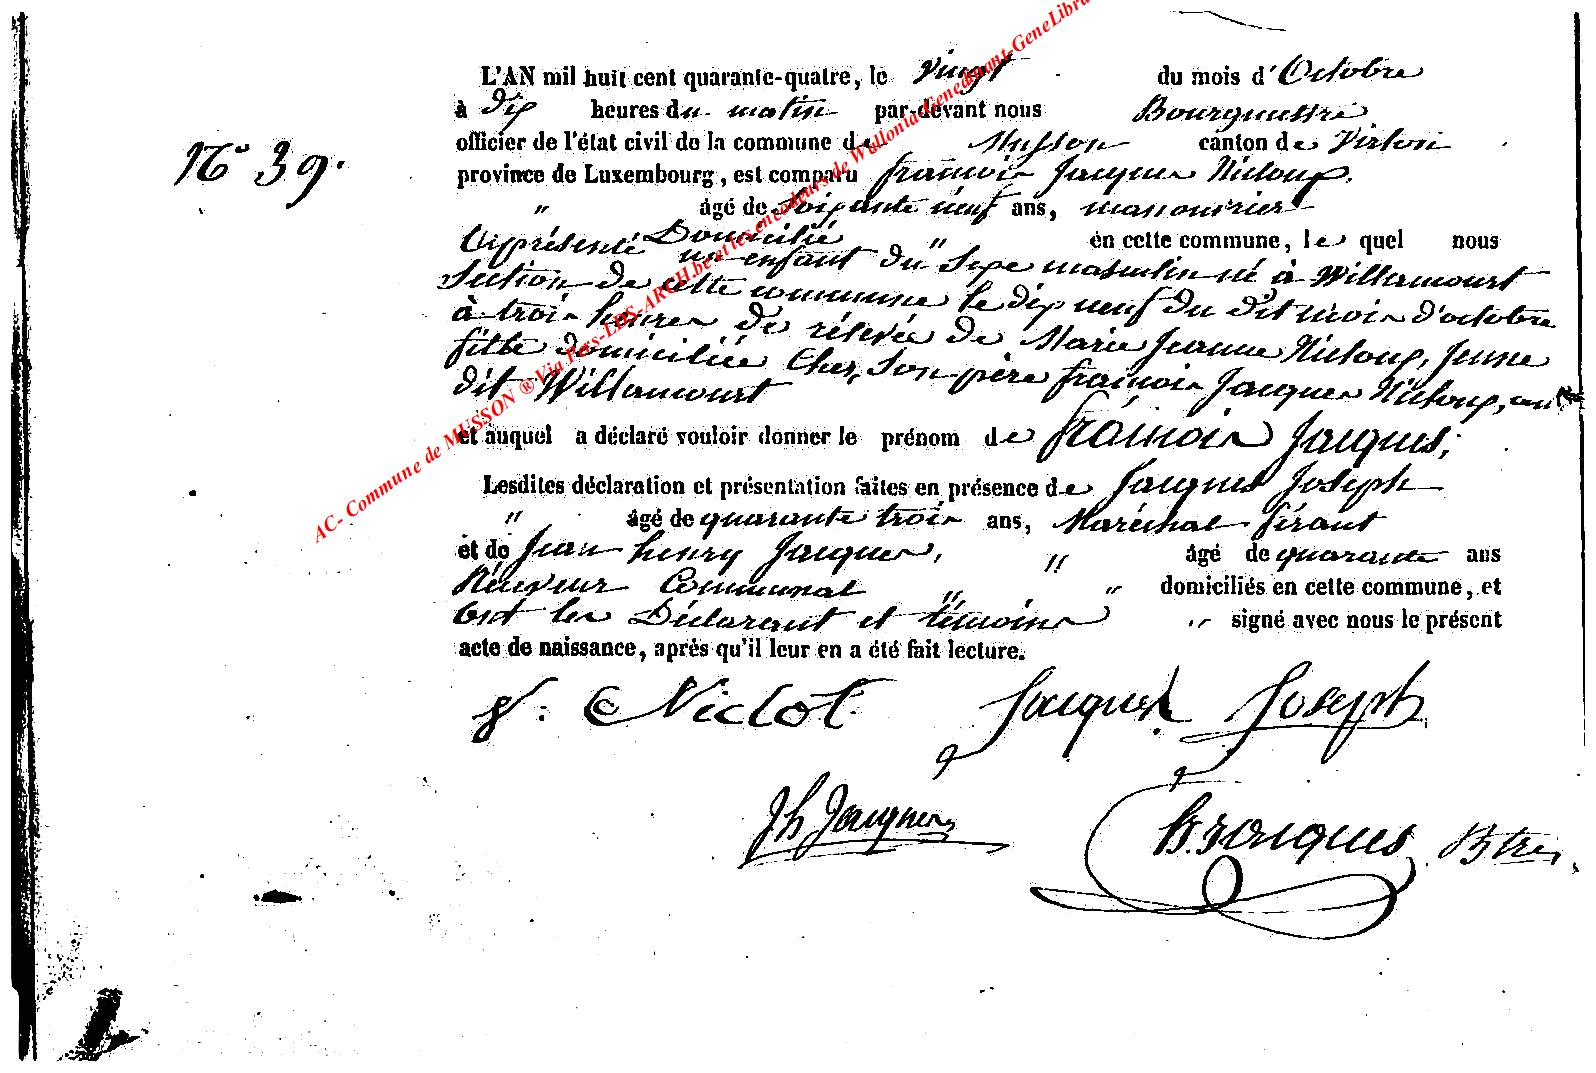 L'AN mil huit cent quarante-quatre, le vingt du mois d'Octobre
à dix heures du matin par-devant nous Bourgmestre
officier de l'état civil de la commune de Musson canton de Virton
N° 39.
province de Luxembourg, est comparu françois Jacques Nicloux,
" âgé de soixante neuf ans, manouvrier
Domicilié " en cette commune, le quel nous
a présenté un enfant du sexe masculin né à Willancourt
section de cette commune le dix neuf du dit mois d'octobre
à trois heures de relevée de Marie Jeanne Nicloux, jeune
fille domiciliée chez son père françois Jacques Nicloux, au
dit Willancourt
et auquel a déclaré vouloir donner le prénom de françois Jacques;
Lesdites déclaration et présentation faites en présence de Jacques Joseph
" âgé de quarante trois ans, Maréchal férant
et de Jean henry Jacques, " âgé de quarante ans
Receveur Communal " " domiciliés en cette commune, et
ont les Déclarant et témoins " signé avec nous le présent
acte de naissance, après qu'il leur en a été fait lecture.
Niclot Jacques Joseph
Jh Jacques Jacques Btre
AC- Commune de MUSSON ® Via Pers-LDS-ARCH.be et les encodeurs de Wallonia-Genedinant-GeneLibra